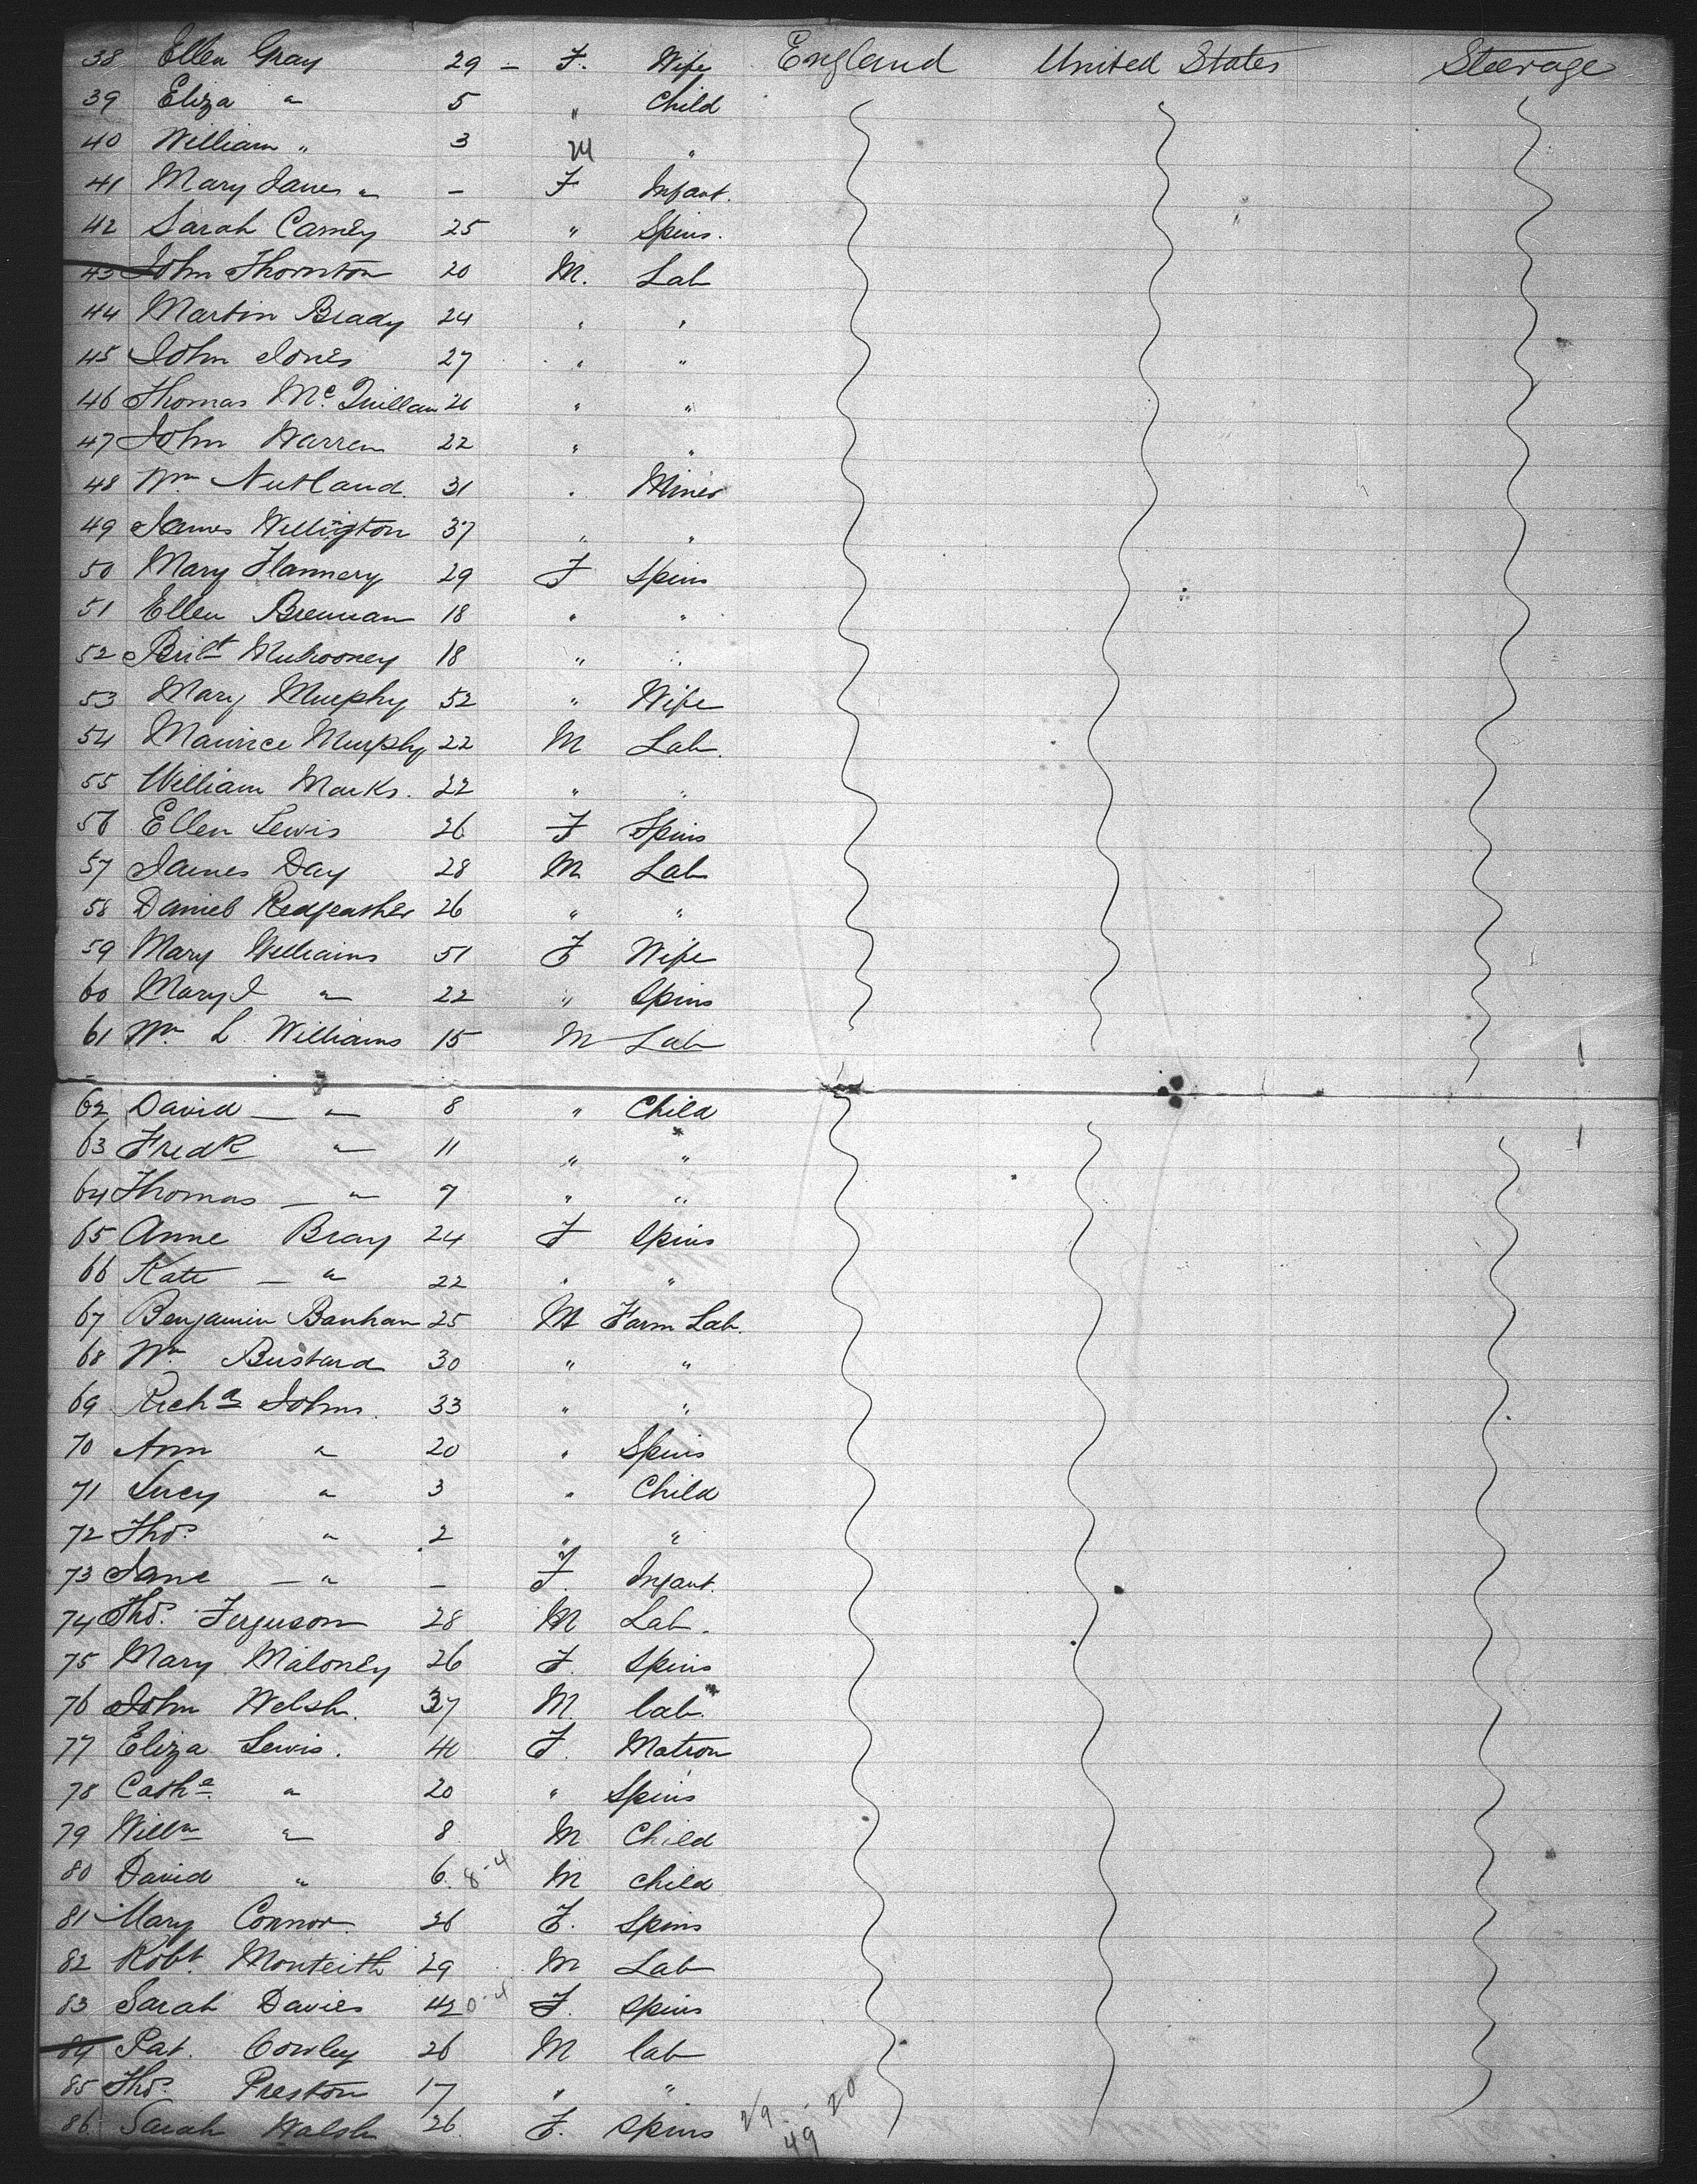 38 Ellen Gray 29 - F. Wife England United States Steerage
39 Eliza " 5 " Child
40 William " 3 M "
41 Mary Jane " - F Infant.
42 Sarah Carney 25 " Spins.
43 John Thornton 20 M. Lab
44 Martin Brady 24 " "
45 John Jones 27 " "
46 Thomas Mc Quillan 26 " "
47 John Warren 22 " "
48 Wm Nutland 31 " Miner
49 James Willington 37 " "
50 Mary Flannery 29 F Spins
51 Ellen Brennan 18 " "
52 Bridt Mulrooney 18 " "
53 Mary Murphy 52 " Wife
54 Maurice Murphy 22 M Lab.
55 William Marks. 22 " "
56 Ellen Lewis 26 F Spins
57 James Day 28 M Lab
58 Daniel Redfeather 26 " "
59 Mary Williams 51 F Wife
60 Mary J " 22 " Spins
61 Wm L Williams 15 M Lab
62 David - " 8 " Child
63 Fredk " 11 " "
64 Thomas - " 7 " "
65 Anne Bray 24 F Spins
66 Kate - " 22 " "
67 Benjamin Banham 25 M Farm Lab.
68 Wm Bustard 30 " "
69 Richd Johns. 33 " "
70 Ann " 20 " Spins
71 Lucy " 3 " Child
72 Thos. " 2 " "
73 Jane - " - F. Infant.
74 Thos. Ferguson 28 M Lab.
75 Mary Maloney 26 F. Spins
76 John Welsh. 37 M. lab.
77 Eliza Lewis. 40 F. Matron
78 Cathe " 20 " Spins
79 Willm " 8 M Child
80 David " 6. 8-4 M child
81 Mary Connor 26 F. Spins
82 Robt. Monteith 29 M Lab
83 Sarah Davies 42 0-4 F. Spins
84 Pat. Cowley 26 M lab
85 Thos. Preston 17 " "
86 Sarah Walsh 26 F. Spins 29 - 20
49